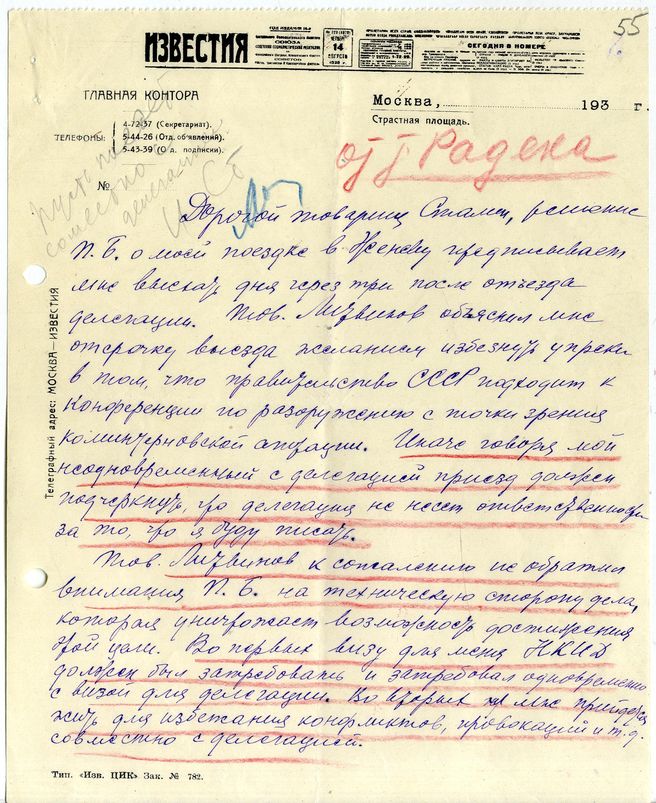 55
ИЗВЕСТИЯ
14
СЕГОДНЯ В НОМЕРЕ
ГЛАВНАЯ КОНТОРА
Москва, 193 г.
Страстная площадь.
ТЕЛЕФОНЫ:
4-72-37 (Секретариат).
5-44-26 (Отд. объявления).
5-43-39 (О д. подписки).
№
от т. Радека
Пусть
И Ст
Дорогой товарищ Сталин, решение
П. Б. о моей поездке в Женеву предписывает
мне выехать дня через три после отъезда
делегации. Тов. Литвинов объяснил мне
отсрочку выезда желанием избегнуть упреки
в том, что правительство СССР подходит к
конференции по разоружению с точки зрения
коминтерновской агитации. Иначе говоря мой
неодновременный с делегацией приезд должен
подчеркнуть, что делегация не несет ответственности
за то, что я буду писать.
Тов. Литвинов к сожалению не обратил
внимания П. Б. на техническую сторону дела,
которая уничтожает возможность достижения
этой цели. Во первых визу для меня НКИД
должен был затребовать и затребовал одновременно
с визой для делегации. Во вторых мне придется
жить для избежания конфликтов, провокаций и т. д.
совместно с делегацией.
Телеграфный адрес: МОСКВА—ИЗВЕСТИЯ
Тип. «Изв. ЦИК» Зак. № 782.